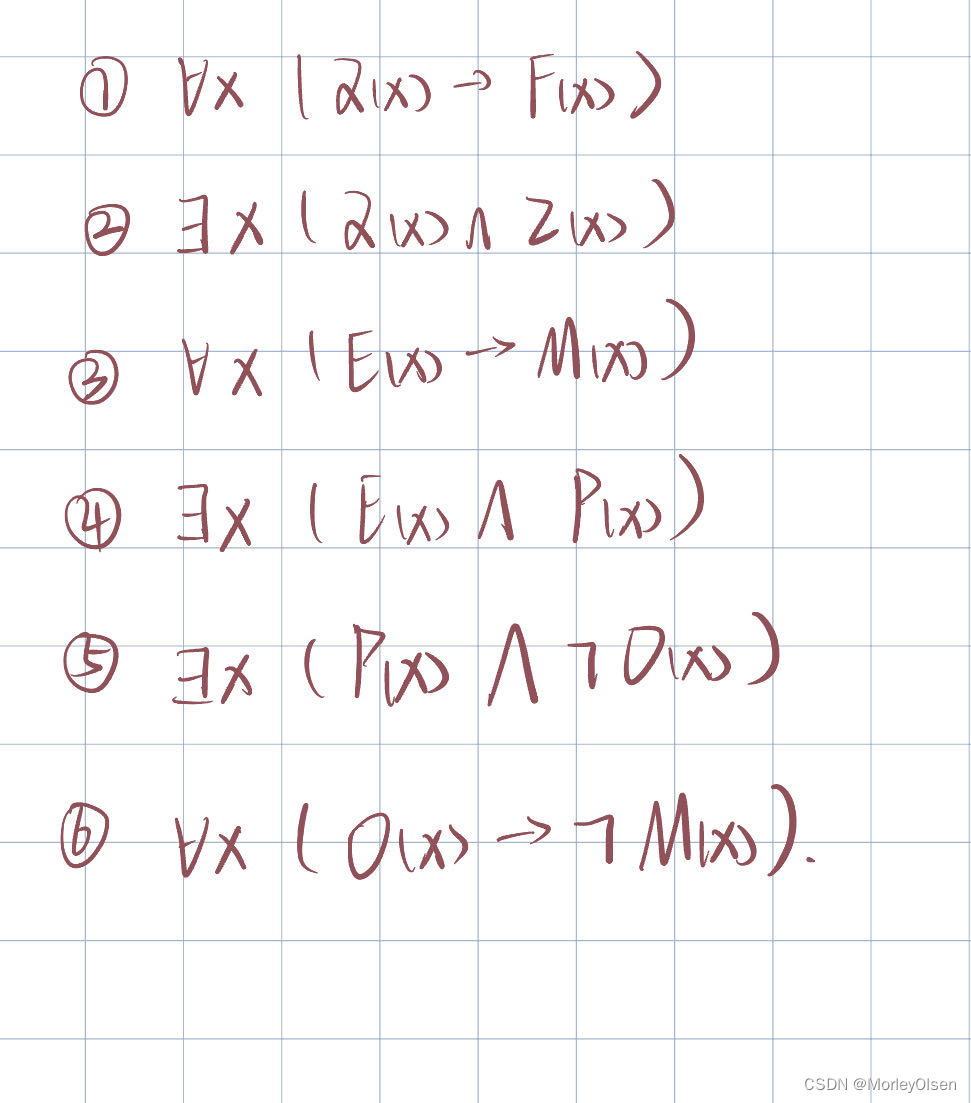 ① ∀x (Q(x) → F(x))
② ∃x (Q(x) ∧ Z(x))
③ ∀x (E(x) → M(x))
④ ∃x (E(x) ∧ P(x))
⑤ ∃x (P(x) ∧ ¬O(x))
⑥ ∀x (O(x) → ¬M(x)).
CSDN @MorleyOlsen